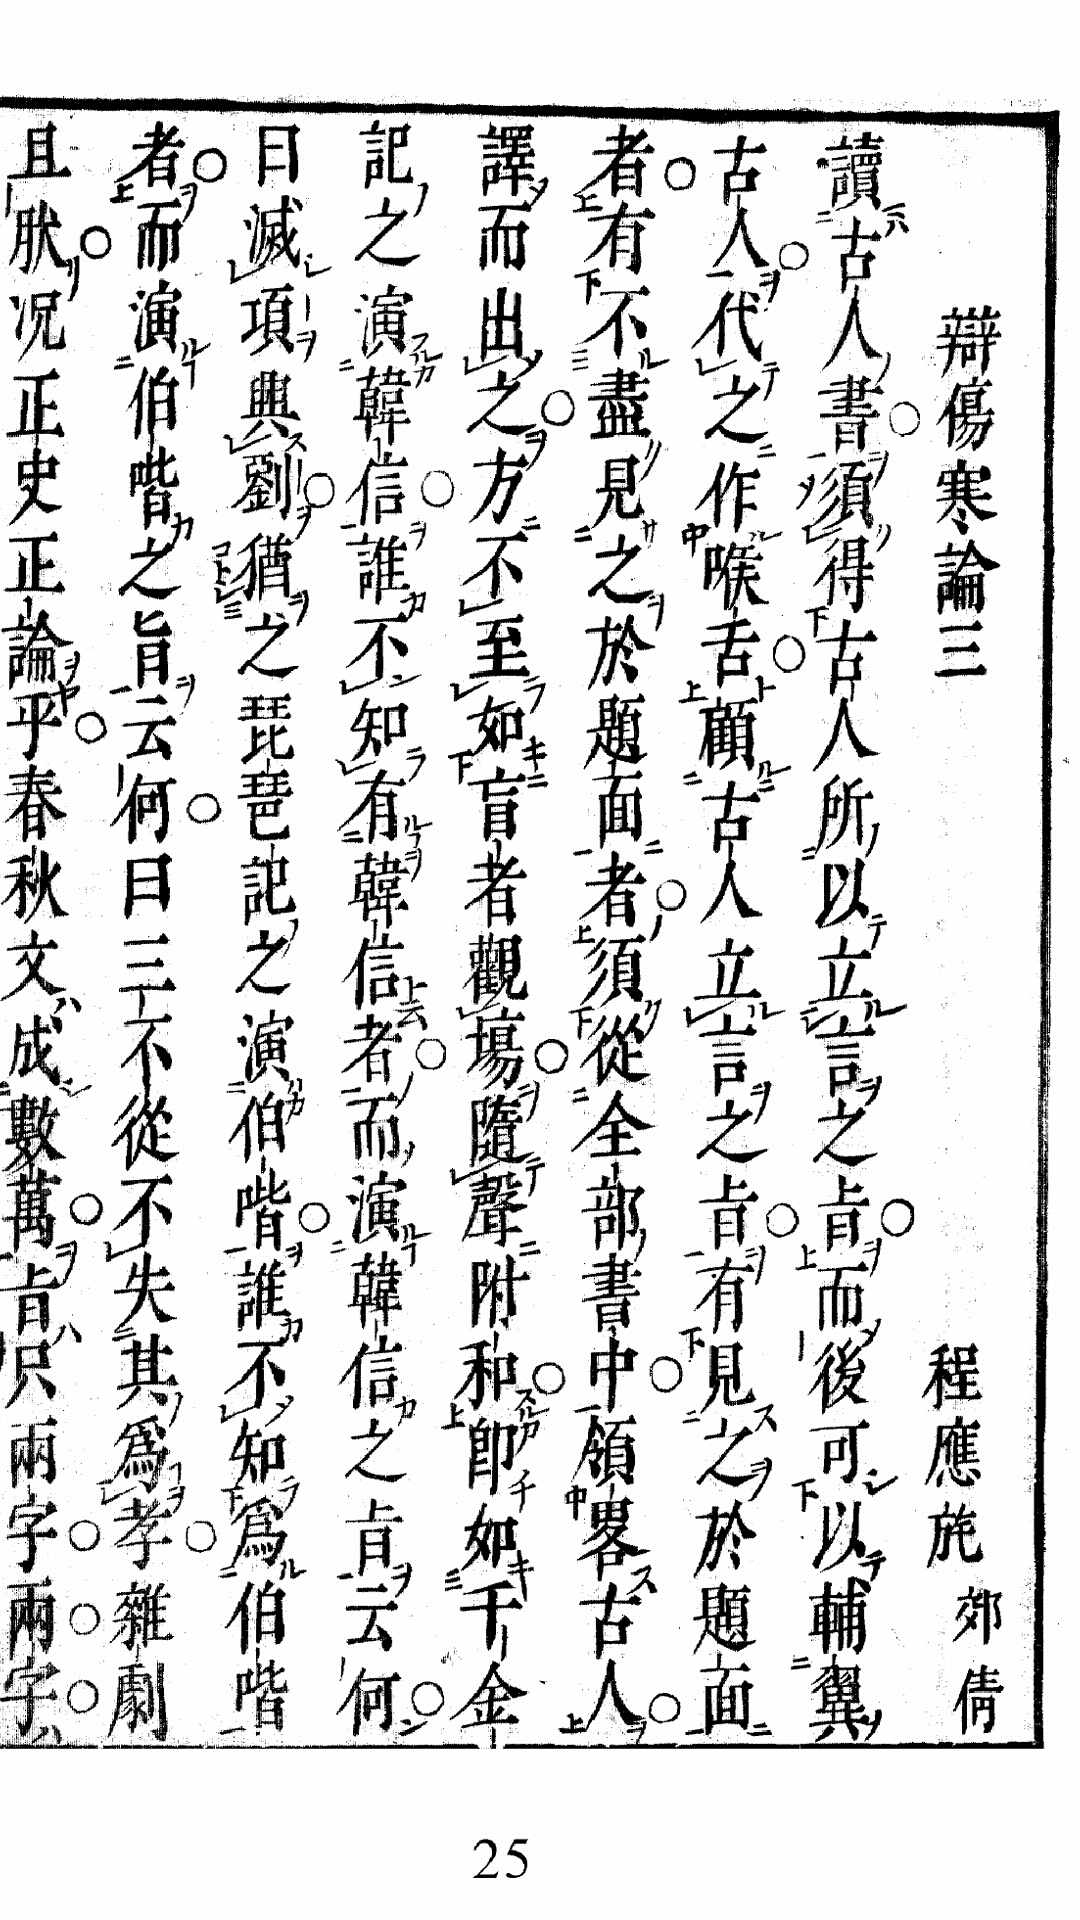 辯傷寒論三
程應旄 郊倩
讀古人書須得古人所以立言之旨而後可以輔翼
古人代之作喉舌顧古人立言之旨有見之於題面
者有不盡見之於題面者須從全部書中領畧古人
譯而出之方不至如盲者觀場隨聲附和卽如千金
記之演韓信誰不知有韓信者而演韓信之旨云何
曰滅項興劉猶之琵琶記之演伯喈誰不知爲伯喈
者而演伯喈之旨云何曰三不從不失其爲孝雜劇
且肰况正史正論乎春秋文成數萬旨只兩字兩字
25